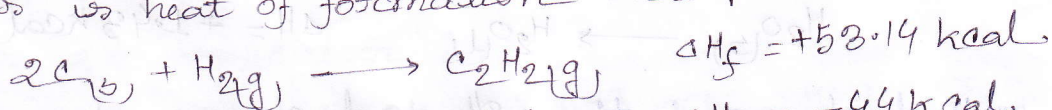 is heat of formation
2C(s) + H2(g) ⟶ C2H2(g) ΔHf = +53.14 kcal.
-44 k cal.